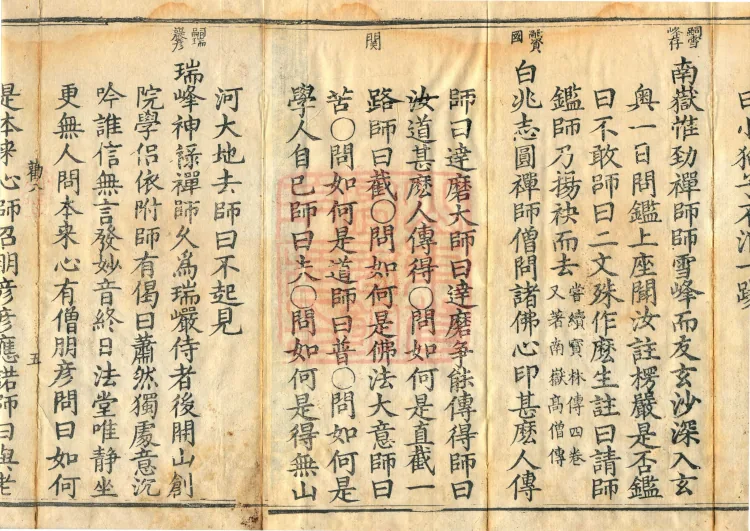 嗣雪峰存
南嶽惟劲禪師師雪峰而友玄沙深入玄
奥一日問鑑上座聞汝註楞嚴是否鑑
曰不敢師曰二文殊作麼生註曰請師
鑑師乃揚袂而去
嘗續寶林傳四卷
又著南嶽高僧傳
嗣資國
白兆志圓禪師僧問諸佛心印甚麼人傳
師曰達磨大師曰達磨争能傳得師曰
汝道甚麼人傳得○問如何是直截一
路師曰截○問如何是佛法大意師曰
関
苦○問如何是道師曰普○問如何是
學人自已師曰失○問如何是得無山
河大地去師曰不起見
嗣瑞巖彦
瑞峰神祿禪師久為瑞巖侍者後開山創
院學侶依附師有偈曰蕭然獨處意沉
吟誰信無言發妙音終日法堂唯静坐
更無人問本来心有僧朋彦問曰如何
五
是本来心師召朋彦彦應諾師曰與老